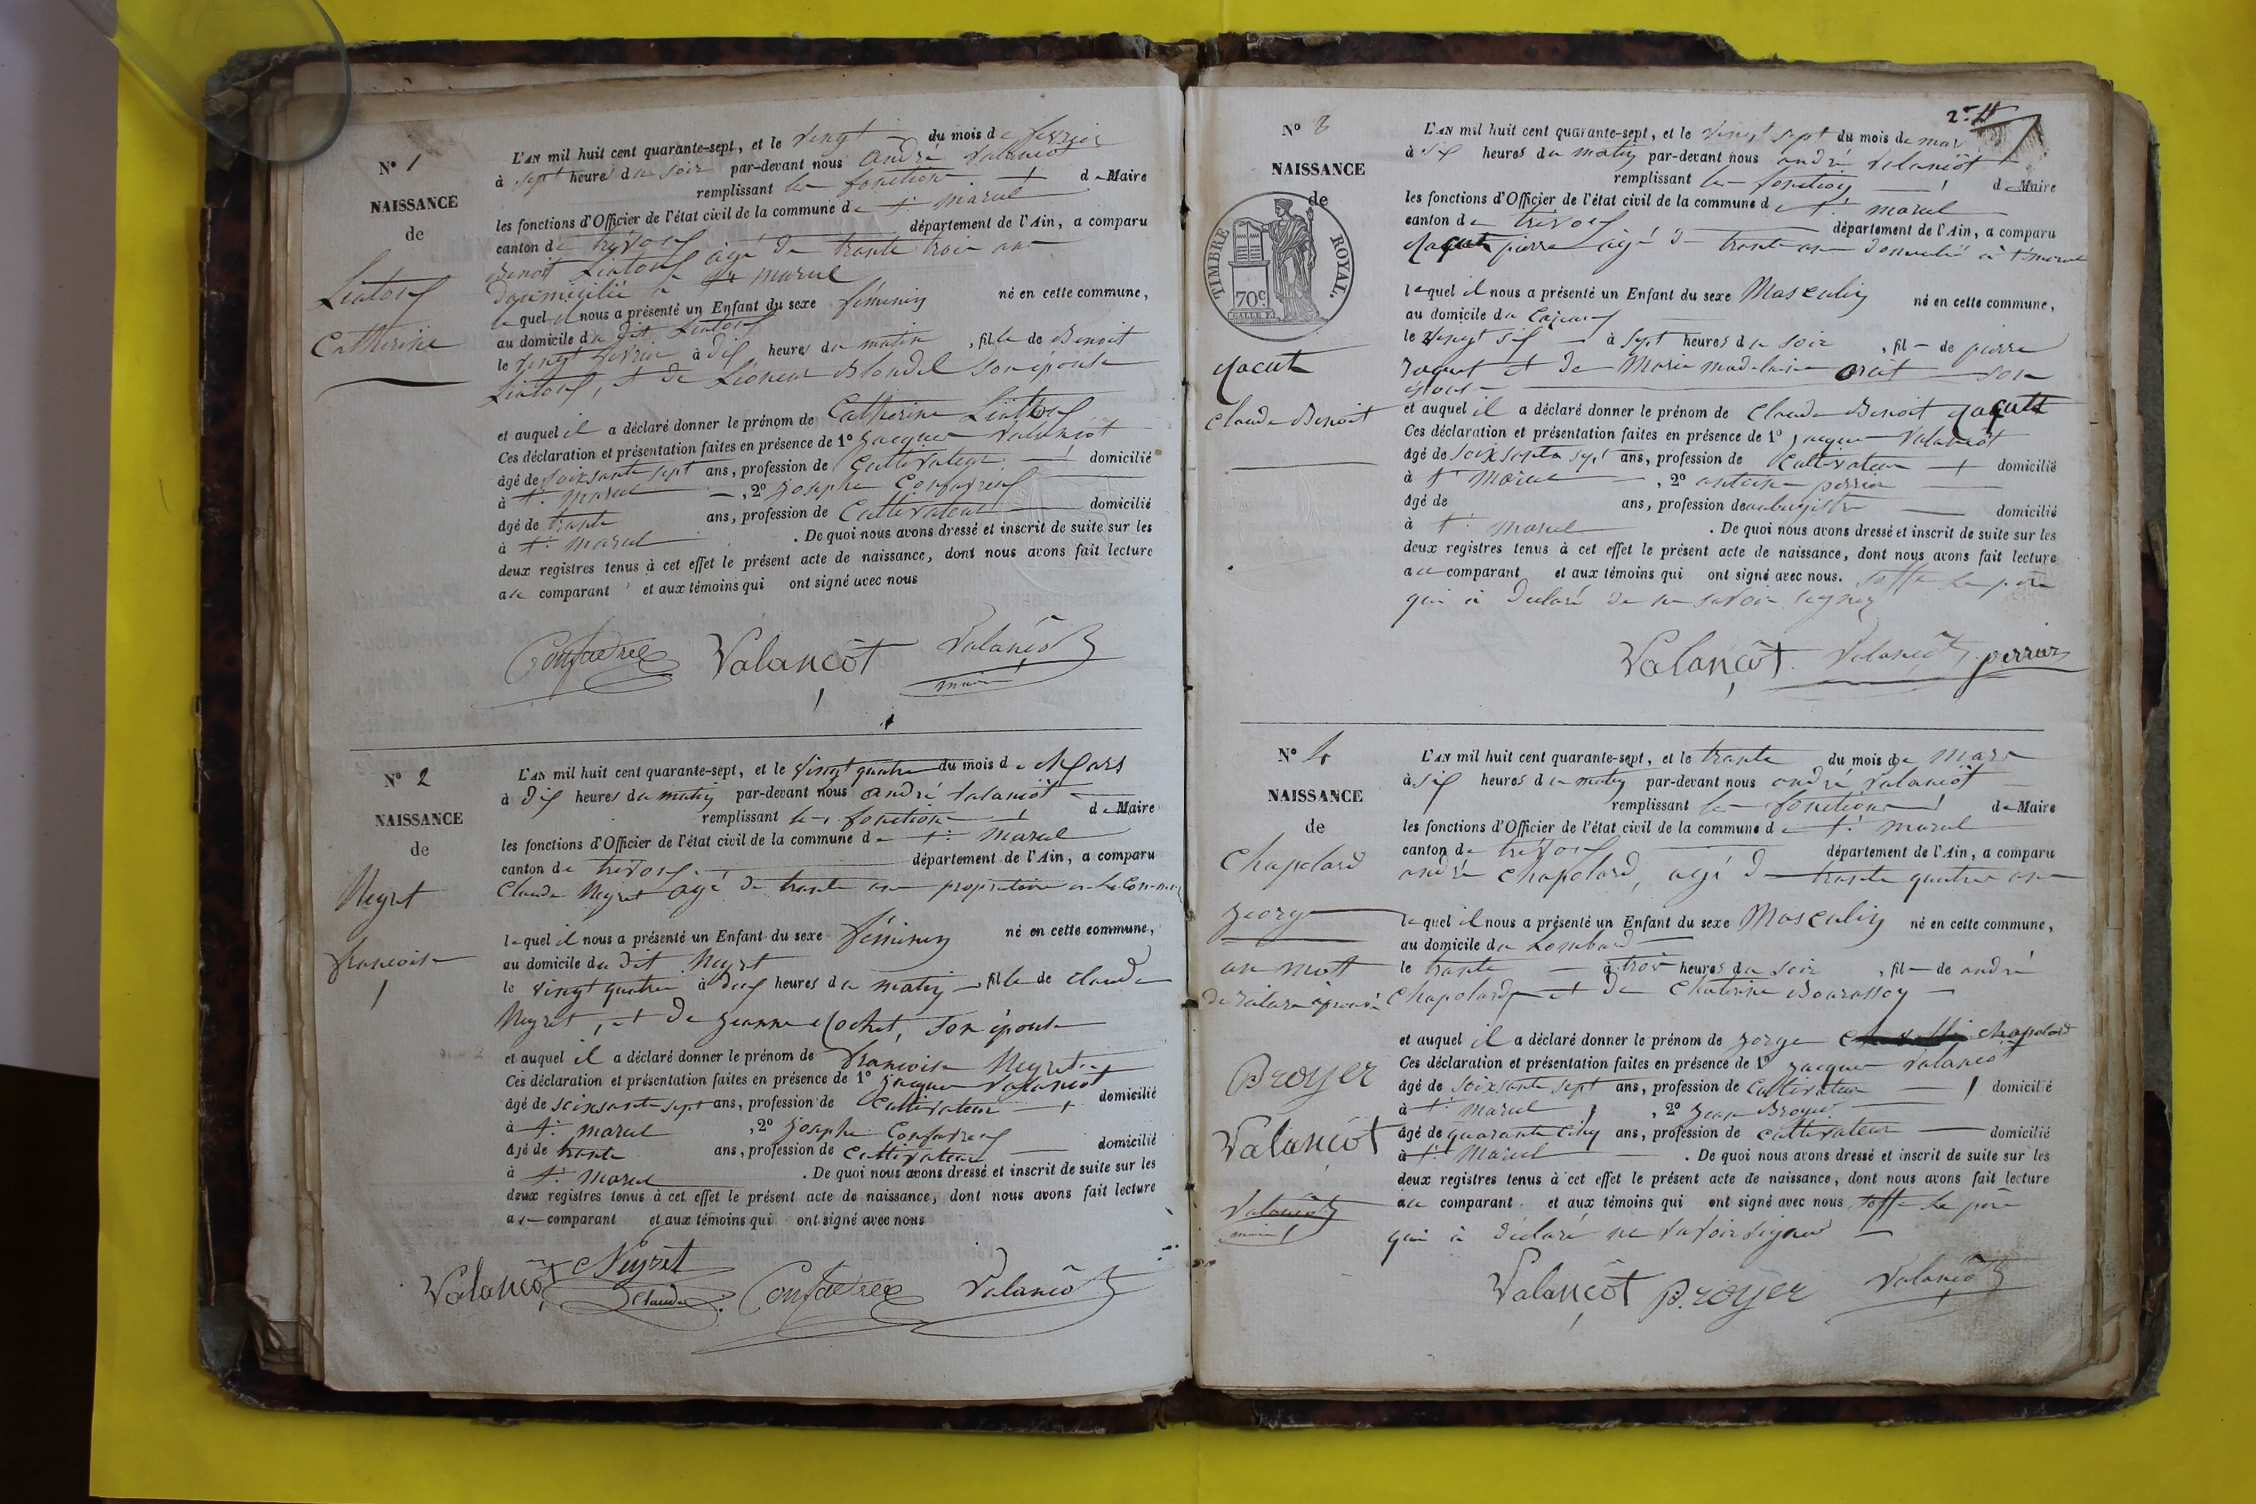 N° 1
NAISSANCE
de
Liatout
Catherine
L'AN mil huit cent quarante-sept, et le vingt du mois de fevrier
à sept heures du soir par-devant nous andré Valançot
remplissant les fonction de Maire
les fonctions d'Officier de l'état civil de la commune de St marcel
canton de trévoux département de l'Ain, a comparu
Benoit Liatout agé de trante trois ans
Doumicilié à St marcel
lequel il nous a présenté un Enfant du sexe féminin né en cette commune,
au domicile du dit Liatout
le vingt fevrier à dix heures du matin, fille de Benoit
Liatout, et de Léoneur Blondel son épouse
et auquel il a déclaré donner le prénom de Catherine Liattout
Ces déclaration et présentation faites en présence de 1° jacques Valançot
âgé de soixsante sept ans, profession de Cultivateur domicilié
à St marcel, 2° josephe Confavreux
âgé de trante ans, profession de Cultivateur domicilié
à St marcel. De quoi nous avons dressé et inscrit de suite sur les
deux registres tenus à cet effet le présent acte de naissance, dont nous avons fait lecture
au comparant et aux témoins qui ont signé avec nous
Confavreux Valançot Valançot
maire
N° 2
NAISSANCE
de
Neyret
francoise
L'AN mil huit cent quarante-sept, et le vingt quatre du mois de Mars
à dix heures du matin par-devant nous andré Valançot
remplissant les fonction de Maire
les fonctions d'Officier de l'état civil de la commune de St marcel
canton de trévoux département de l'Ain, a comparu
Claude Neyret agé de trante ans propriétaire en la Commune
lequel il nous a présenté un Enfant du sexe féminin né en cette commune,
au domicile du dit Neyret
le vingt quatre à deux heures du matin, fille de claude
Neyret, et de jeanne Rochet, son épouse
et auquel il a déclaré donner le prénom de francoise Neyret
Ces déclaration et présentation faites en présence de 1° jacques Valançot
âgé de soixsante sept ans, profession de Cultivateur domicilié
à St marcel, 2° josephe Confavreux
âgé de trante ans, profession de Cultivateur domicilié
à St marcel. De quoi nous avons dressé et inscrit de suite sur les
deux registres tenus à cet effet le présent acte de naissance, dont nous avons fait lecture
au comparant et aux témoins qui ont signé avec nous
Valançot Neyret Claude Confavreux Valançot
N° 3
NAISSANCE
de
TIMBRE ROYAL.
70c
Jacut
Claude Benoit
L'AN mil huit cent quarante-sept, et le vingt sept du mois de mars
à six heures du matin par-devant nous andré Valançot
remplissant les fonction de Maire
les fonctions d'Officier de l'état civil de la commune de St marcel
canton de trévoux département de l'Ain, a comparu
Jacut pierre agé de trante ans domicilié à St marcel
lequel il nous a présenté un Enfant du sexe Masculin né en cette commune,
au domicile du
le vingt six à sept heures du soir, fil de pierre
Jacut et de Marie madelaine son
épouse
et auquel il a déclaré donner le prénom de Claude Benoit Jacutt
Ces déclaration et présentation faites en présence de 1° jacques Valançot
âgé de soixsante sept ans, profession de Cultivateur domicilié
à St Marcel, 2° antoine perrier
âgé de ans, profession de aubergiste domicilié
à St marcel. De quoi nous avons dressé et inscrit de suite sur les
deux registres tenus à cet effet le présent acte de naissance, dont nous avons fait lecture
au comparant et aux témoins qui ont signé avec nous. soffe le père
qui à déclaré de ne savoir signer
Valançot Valançot perrier
N° 4
NAISSANCE
de
Chapolard
jeorge
un mott
de rature aprouvé
Broyer
Valançot
Valançot
maire
L'AN mil huit cent quarante-sept, et le trante du mois de mars
à six heures du matin par-devant nous andré Valançot
remplissant les fonctions de Maire
les fonctions d'Officier de l'état civil de la commune de St marcel
canton de trévoux département de l'Ain, a comparu
andré Chapolard, agé de trante quatre ans
lequel il nous a présenté un Enfant du sexe Masculin né en cette commune,
au domicile du Lombard
le trante à trois heures du soir, fil de andré
Chapolard et de Chaterine Bourassoy
et auquel il a déclaré donner le prénom de jorge Chapolard
Ces déclaration et présentation faites en présence de 1° jacques Valançot
âgé de soixsante sept ans, profession de Cultivateur domicilié
à St marcel, 2° jean Broyer
âgé de quarante cinq ans, profession de cultivateur domicilié
à St Marcel. De quoi nous avons dressé et inscrit de suite sur les
deux registres tenus à cet effet le présent acte de naissance, dont nous avons fait lecture
au comparant et aux témoins qui ont signé avec nous soffe le père
qui à déclaré ne savoir signer
Valançot Broyer Valançot